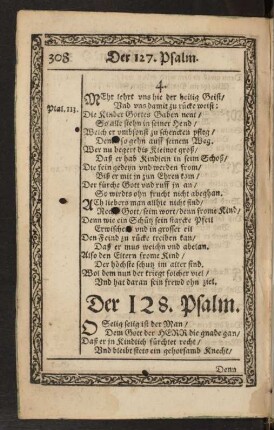 308 Der 127. Psalm.
4
MEhr lehrt vns hie der heilig Geist/
Psal. 113. Vnd vns damit zu rücke weist:
Die Kinder Gottes Gaben nent/
So alle stehn in seiner Hend/
Welch er vmbsonst zu schencken pfleg/
so gehn auff seinem Weg.
Wer nu begert diß Kleinot groß/
Daß er hab Kindlein in seim Schoß/
Die fein gedeyn vnd werden from/
Biß er mit jn zun Ehren kom/
Der fürcht Gott vnd ruff jn an/
So wirds ohn frucht nicht abgehan.
Ach lieders man allhie nicht find/
Gott/ seim wort/ denn frome Kind/
Denn wie ein Schütz sein starcke Pfeil
Erwischet vnd in grosser eil
Den Feind zu rücke treiben kan/
Daß er mus weichn vnd abelan.
Also den Eltern frome Kind/
Der höchste schutz im alter sind.
Wol dem nun der kriegt solcher viel/
Vnd hat daran sein frewd ohn ziel.
Der 128. Psalm.
O Selig selig ist der Man/
Dem Gott der HERR die gnade gan/
Daß er in Kindlich fürchtet recht/
Vnd bleibt stets ein gehorsamb Knecht/
Denn